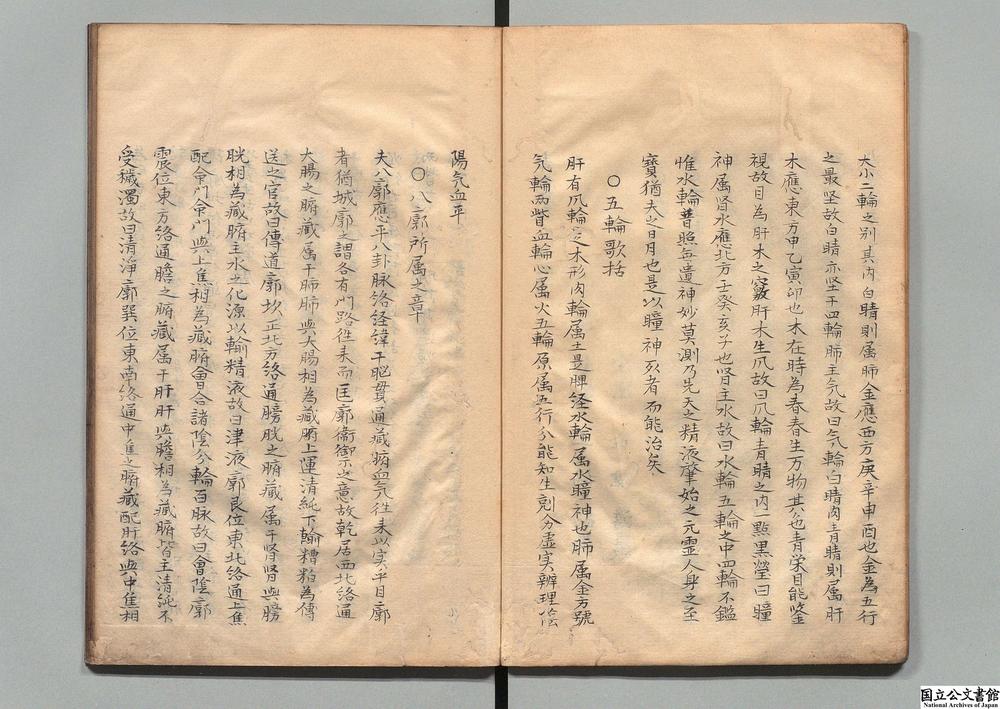 大小二輪之別其内白睛則属肺金應西方庚辛申酉也金為五行
之最坚故白睛亦坚于四輪肺主气故曰气輪白睛内青睛則属肝
木應東方甲乙寅卯也木在時為春春生万物其色青荣目能鉴
視故目為肝木之竅肝木生爪故曰爪輪青睛之内一點黑瑩曰瞳
神属肾水應北方壬癸亥子也肾主水故曰水輪五輪之中四輪不鑑
惟水輪普照無遺神妙莫測乃先天之精液肇始之元靈人身之至
寳猶夫之日月也是以瞳神死者而能治矣
○五輪歌括
肝有爪輪是木形肉輪属土是脾経水輪属水瞳神也肺属金方號
气輪两眥血輪心属火五輪原属五行分能知生剋分虚实辨理阴
陽气血平
○八廓所属之章
夫八廓應乎八卦脉络経緯于脳貫通藏腑血气往来以实乎目廓
者猶城廓之謂各有門路往来而匡廓衛御之意故乾居西北络通
大腸之腑藏属于肺肺與大腸相為藏腑上運清純下輸糟粕為傳
送之官故曰傳道廓坎正北方络通膀胱之腑藏属于肾肾與膀
胱相為藏腑主水之化源以輸精液故曰津液廓艮位東北络通上焦
配命門命門與上焦相為藏腑會合諸陰分輪百脉故曰會陰廓
震位東方络通膽之腑藏属于肝肝與膽相為藏腑皆主清純不
受穢濁故曰清淨廓巽位東南络通中焦之腑藏配肝络與中焦相
国立公文書館
National Archives of Japan